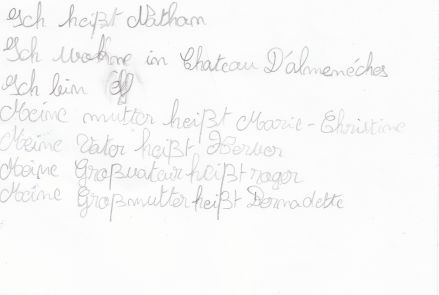 Ich heißt Natham
Ich wohne in Chateau D'almenéches
Ich bin elf
Meine mutter heißt Marie-Christine
Meine Vater heißt Herver
Meine Großvatair heißt roger
Meine Großmutter heißt Bernadette